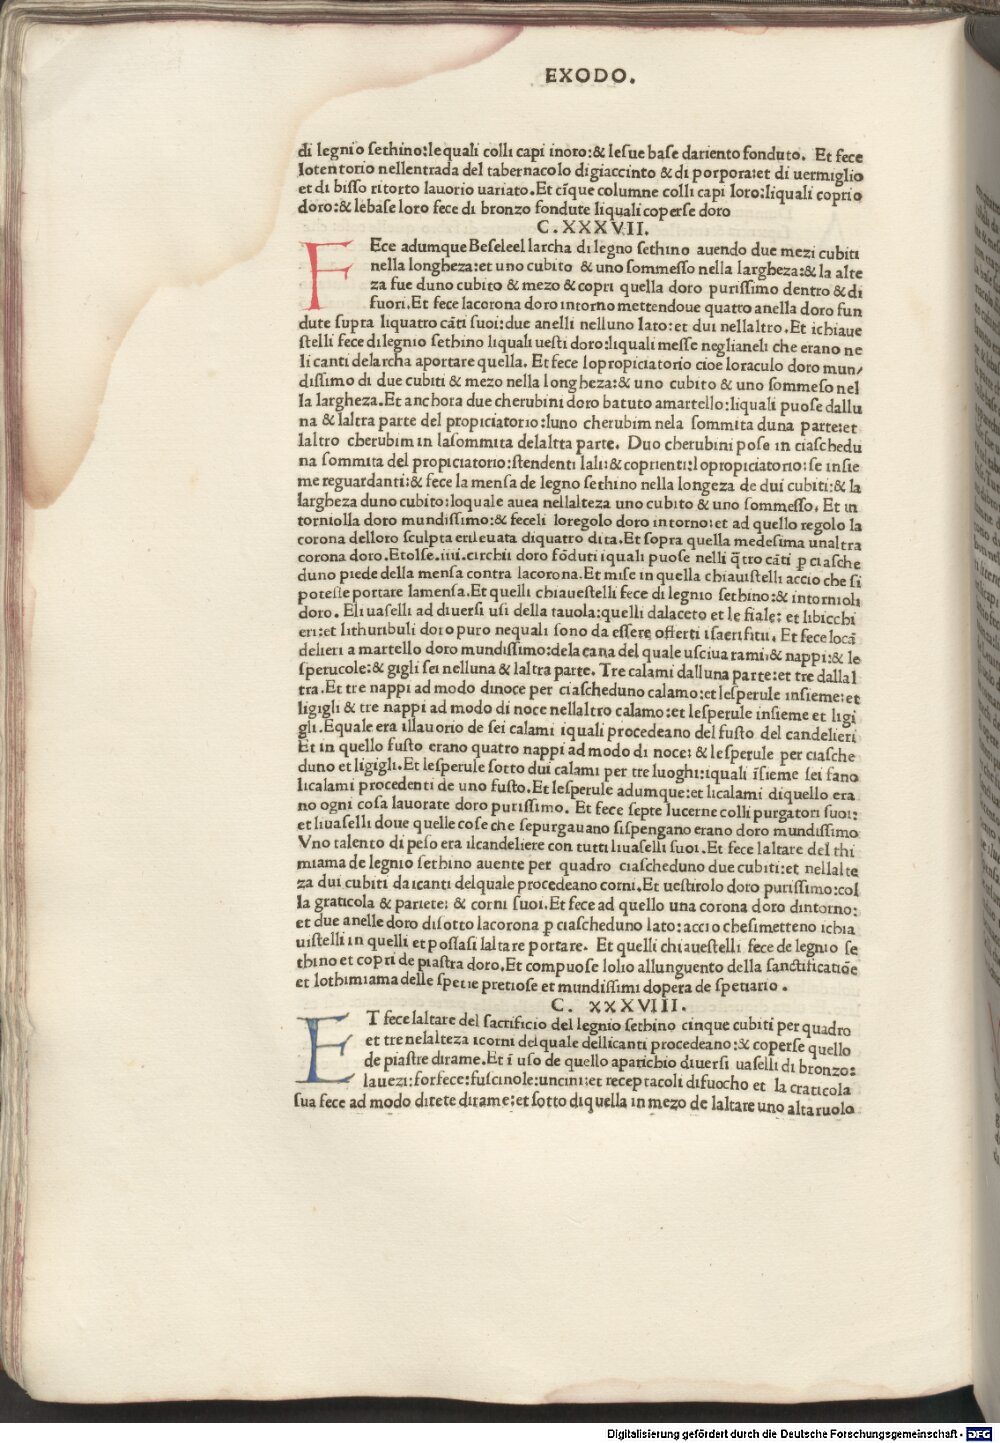 EXODO.
di legnio ſethino:lequali colli capi inoro:& leſue baſe dariento fonduto. Et fece
lotentorio nellentrada del tabernacolo digiaccinto & di porpora:et di uermiglio
et di biſſo ritorto lauorio uariato.Et cīque columne colli capi loro:liquali coprio
doro:& lebaſe loro fece di bronzo fondute liquali coperſe doro
C.XXXVII.
FEce adumque Beſeleel larcha di legno ſethino auendo due mezi cubiti
nella longheza:et uno cubito & uno ſommeſſo nella largheza:& la alte
za fue duno cubito & mezo & copri quella doro puriſſimo dentro & di
fuori.Et fece lacorona doro intorno mettendoue quatro anella doro fun
dute ſupra liquatro cāti ſuoi:due anelli nelluno lato:et dui nellaltro.Et ichiaue
ſtelli fece di legnio ſethino liquali ueſti doro:liquali meſſe neglianeli che erano ne
li canti delarcha aportare quella. Et fece lopropiciatorio cioe loraculo doro mun/
diſſimo di due cubiti & mezo nella longheza:& uno cubito & uno ſommeſo nel
la largheza.Et anchora due cherubini doro batuto amartello:liquali puoſe dallu
na & laltra parte del propiciatorio:luno cherubim nela ſommita duna parte:et
laltro cherubim in laſommita delaltra parte. Duo cherubini poſe in ciaſchedu
na ſommita del propiciatorio:ſtendenti lali:& coprienti:lopropiciatorio:ſe inſie
me reguardanti:& fece la menſa de legno ſethino nella longeza de dui cubiti:& la
largheza duno cubito:loquale auea nellalteza uno cubito & uno ſommeſſo. Et in
torniolla doro mundiſſimo:& feceli loregolo doro intorno:et ad quello regolo la
corona delloro ſculpta erileuata diquatro dita.Et ſopra quella medeſima unaltra
corona doro.Etolſe.iiii.circhii doro fōduti iquali puoſe nelli q̄tro cāti p ciaſche
duno piede della menſa contra lacorona.Et miſe in quella chiauiſtelli accio che ſi
poteſſe portare lamenſa.Et quelli chiaueſtelli fece di legnio ſethino:& intornioli
doro. Eli uaſelli ad diuerſi uſi della tauola:quelli dalaceto et le fiale: et libicchi
eri:et lithuribuli doro puro nequali ſono da eſſere offerti iſacrifitii. Et fece locā
delieri a martello doro mundiſſimo:dela cana del quale uſciua rami,& nappi:& le
ſperucole:& gigli ſei nelluna & laltra parte. Tre calami dalluna parte:et tre dallal
tra.Et tre nappi ad modo dinoce per ciaſcheduno calamo:et leſperule inſieme:et
ligigli & tre nappi ad modo di noce nellaltro calamo:et leſperule inſieme et ligi
gli.Equale era illauorio de ſei calami iquali procedeano del fuſto del candelieri
Et in quello fuſto erano quatro nappi ad modo di noce: & leſperule per ciaſche
duno et ligigli.Et leſperule ſotto dui calami per tre luoghi:iquali īſieme ſei fano
licalami procedenti de uno fuſto.Et leſperule adumque:et licalami diquello era
no ogni coſa lauorate doro puriſſimo. Et fece ſepte lucerne colli purgatori ſuoi:
et liuaſelli doue quelle coſe che ſepurgauano ſiſpengano erano doro mundiſſimo
Vno talento di peſo era ilcandeliere con tutti liuaſelli ſuoi.Et fece laltare del thi
miama de legnio ſethino auente per quadro ciaſcheduno due cubiti:et nellalte
za dui cubiti da icanti delquale procedeano corni.Et ueſtirolo doro puriſſimo:col
la graticola & pariete: & corni ſuoi.Et fece ad quello una corona doro dintorno:
et due anelle doro diſotto lacorona p ciaſcheduno lato:accio cheſimetteno ichia
uiſtelli in quelli et poſſaſi laltare portare. Et quelli chiaueſtelli fece de legnio ſe
thino et copri de piaſtra doro.Et compuoſe lolio allunguento della ſanctificatiōe
et lothimiama delle ſpetie pretioſe et mundiſſimi dopera de ſpetiario .
C. XXXVIII.
ET fece laltare del ſacrificio del legnio ſethino cinque cubiti per quadro
et tre nelalteza icorni delquale dellicanti procedeano:& coperſe quello
de piaſtre dirame.Et ī uſo de quello aparichio diuerſi uaſelli di bronzo:
lauezi:forfece:fuſcinole:uncini:et receptacoli difuocho et la craticola
ſua fece ad modo direte dirame:et ſotto diquella in mezo de laltare uno altaruolo
Digitalisierung gefördert durch die Deutsche Forschungsgemeinschaft - DFG